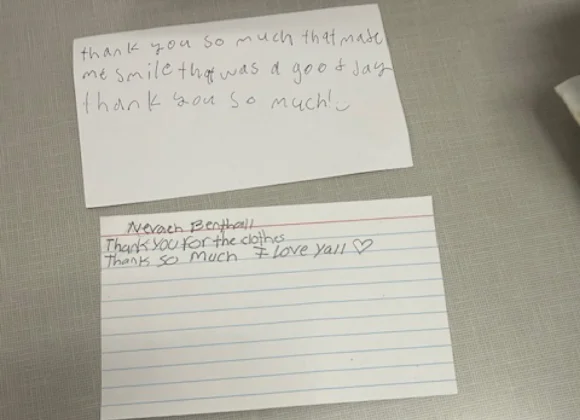 thank you so much that made
me smile that was a good day
thank you so much!
Nevaeh Benthall
Thank you for the clothes
Thanks so much I love yall ♡